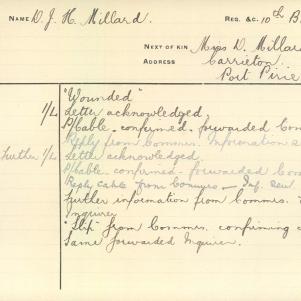 NAME D. J. H. Millard. REG. &C. 10th B
NEXT OF KIN Miss D. Millar
ADDRESS Carrieton
Port Pirie
"Wounded"
1/L Letter acknowledged
P/Cable - confirmed - forwarded Com
Reply from Commrs. Information s
Further 1/L Letter acknowledged
P/Cable - confirmed - forwarded Com
Reply cable from Commrs - Inf. sen
Further information from Commrs.
Inquirer
"Slip" from Commrs, confirming
Same forwarded Inquirer.